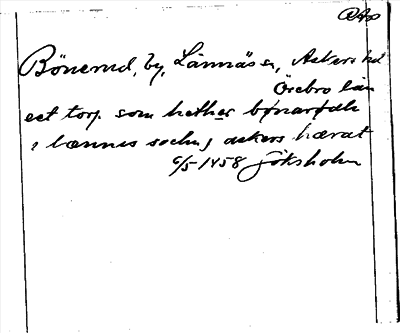 Bönerud, by, Lännäs sn, Askers hd
Örebro län
eet torp som hether bønarødh
i lænnes sochn j askers hærat
6/5 1458 Göksholm